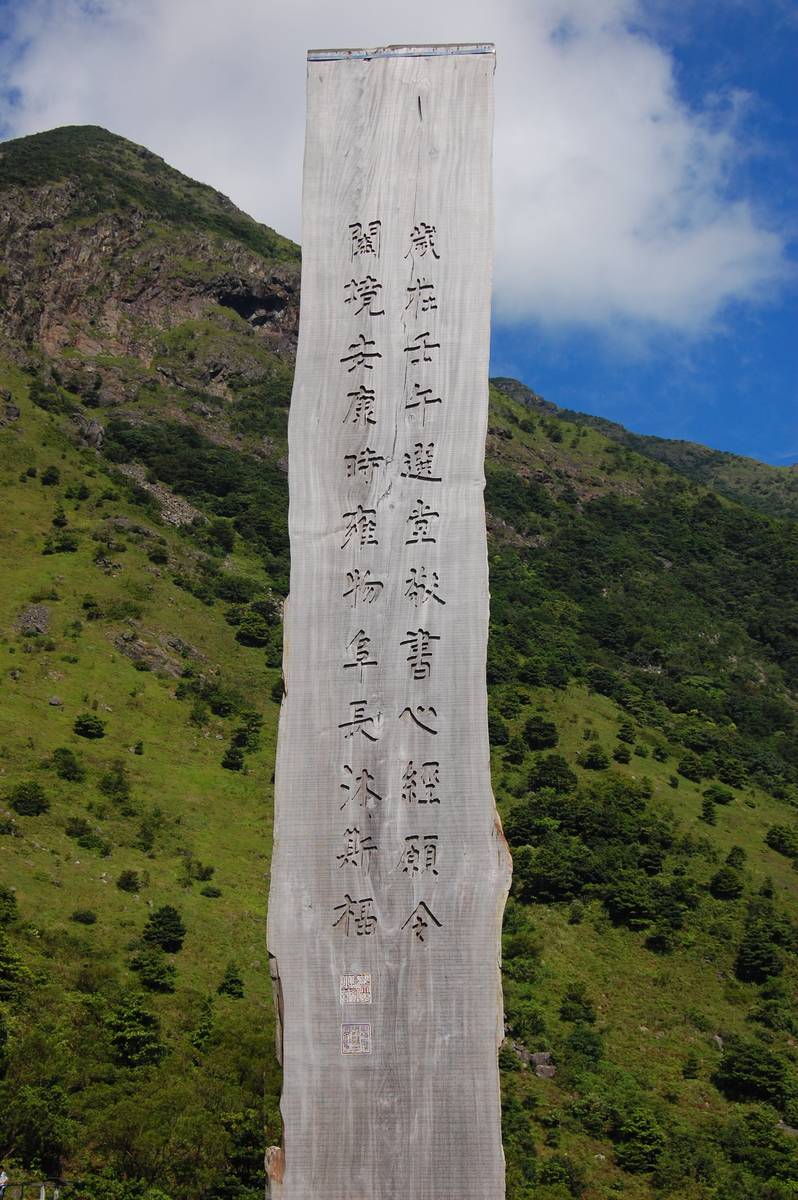 歲在壬午選堂敬書心經願令
闔境安康時雍物阜長沐斯福